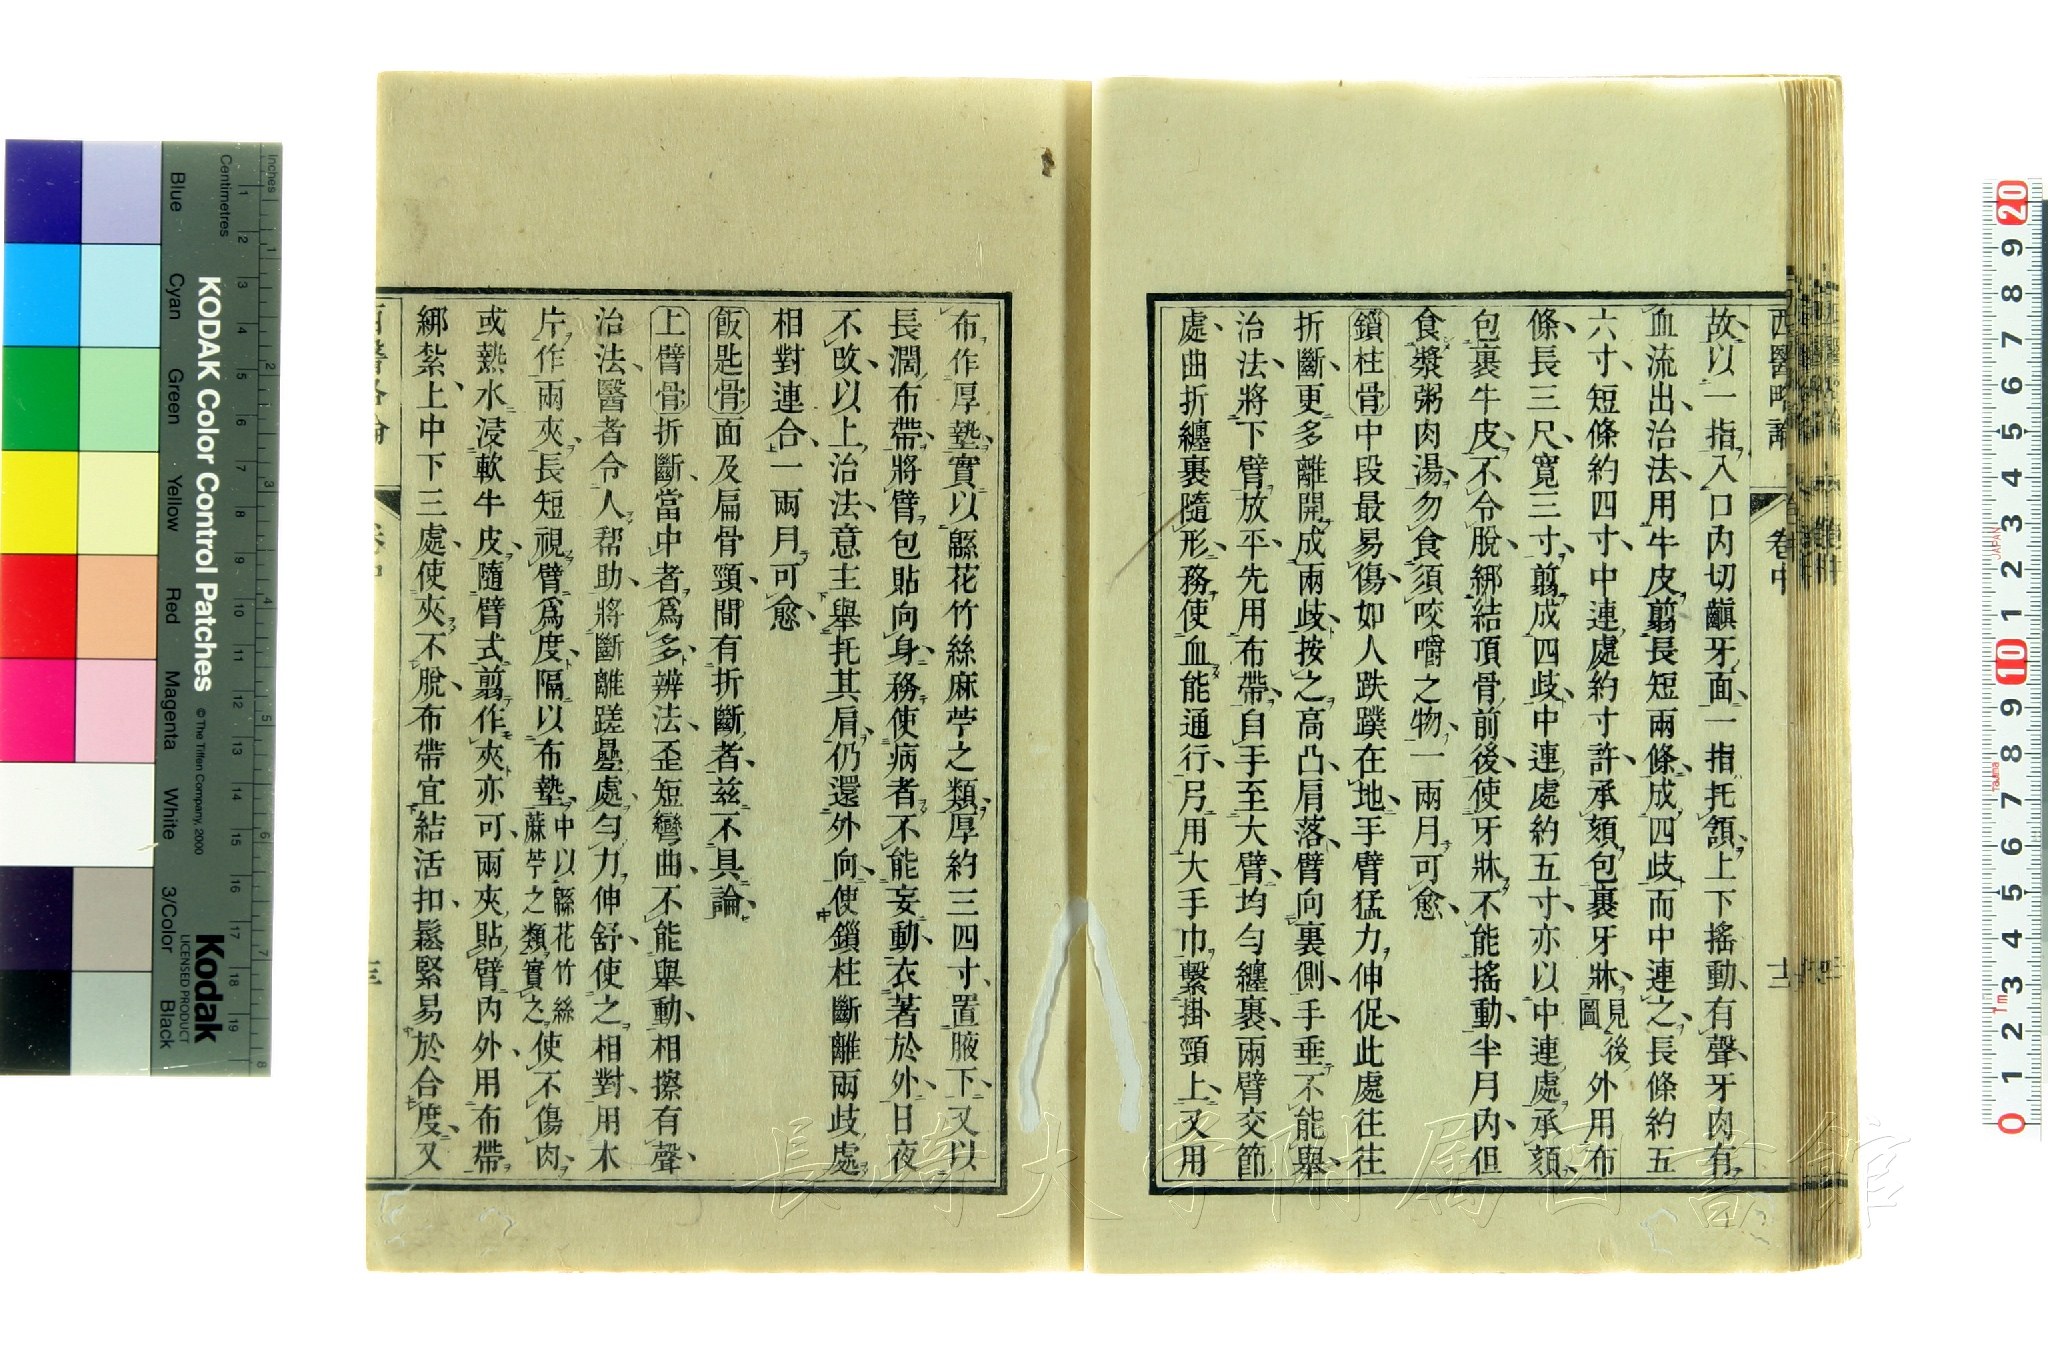 西醫略論
卷中
故以一指入口内切齻牙面一指托頷上下搖動有聲牙肉有
血流出治法用牛皮翦長短兩條成四歧而中連之長條約五
六寸短條約四寸中連處約寸許承頦包裹牙牀見後圖外用布
條長三尺寬三寸翦成四歧中連處約五寸亦以中連處承頦
包裹牛皮不令脫綁結頂骨前後使牙牀不能搖動半月内但
食漿粥肉湯勿食須咬嚼之物一兩月可愈
鎖柱骨中段最易傷如人跌蹼在地手臂猛力伸促此處往往
折斷更多離開成兩歧按之高凸肩落臂向裏側手垂不能舉
治法將下臂放平先用布帶自手至大臂均勻纏裹兩臂交節
處曲折纏裹隨形務使血能通行另用大手巾繫掛頸上又用
布作厚墊實以緜花竹絲麻苧之類厚約三四寸置腋下又以
長濶布帶將臂包貼向身務使病者不能妄動衣著於外日夜
不改以上治法意主舉托其肩仍還外向使鎖柱斷離兩歧處
相對連合一兩月可愈
飯匙骨面及扁骨頸間有折斷者茲不具論
上臂骨折斷當中者爲多辨法歪短彎曲不能舉動相擦有聲
治法醫者令人帮助將斷離蹉疊處勻力伸舒使之相對用木
片作兩夾長短視臂爲度隔以布墊中以緜花竹絲蔴苧之類實之使不傷肉
或熱水浸軟牛皮隨臂式翦作夾亦可兩夾貼臂内外用布帶
綁紮上中下三處使夾不脫布帶宜結活扣鬆緊易於合度又
KODAK Color Control Patches
© The Tiffen Company, 2000
Kodak
LICENSED PRODUCT
Inches
Centimetres
Blue
Cyan
Green
Yellow
Red
Magenta
White
3/Color
Black
長崎大学附属図書館